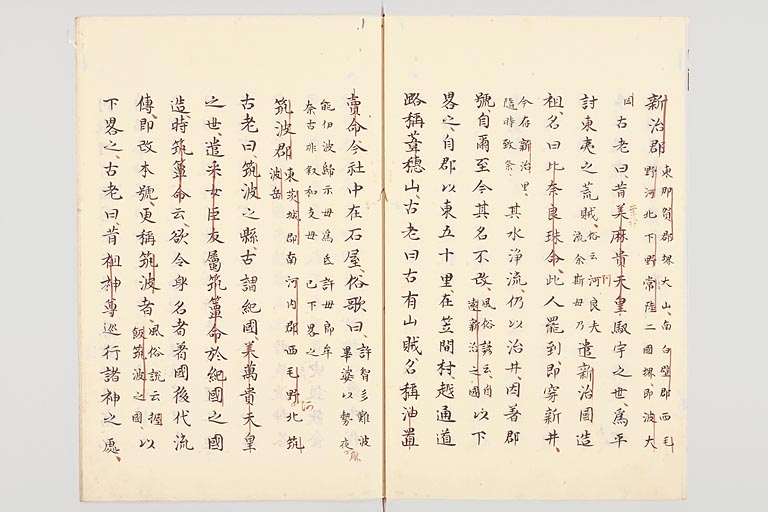 新治郡 東那賀郡堺大山、南白壁郡、西毛野河、北下野常陸二國堺、即波大岡
古老曰、昔美麻貴天皇馭宇之世、爲平
討東夷之荒賊、俗云阿良夫流尓斯母乃 遣新治國造
祖、名曰比奈良珠命、此人罷到、即穿新井、
今存新治里、隨時致祭 其水浄流、仍以治井、因著郡
號、自爾至今、其名不改、風俗諺云、白遠新治之國 以下
畧之、自郡以東五十里、在笠間村、越通道
路、稱葦穂山、古老曰、古有山賊、名稱油置
賣命、今社中在石屋、俗歌曰、許智多雞波乎婆頭勢夜
能伊波歸尓母爲弖許母郎牟奈古非叙和支母 已下畧之
筑波郡 東茨城郡、南河内郡、西毛野河、北筑波岳
古老曰、筑波之縣、古謂紀國、美萬貴天皇
之世、遣采女臣友屬筑簞命於紀國之國
造、時筑簞命云、欲令身名者著國後代流
傳、即改本號、更稱筑波者、風俗説云、握飯筑波之國 以
下畧之、古老曰、昔祖神尊、巡行諸神之處、